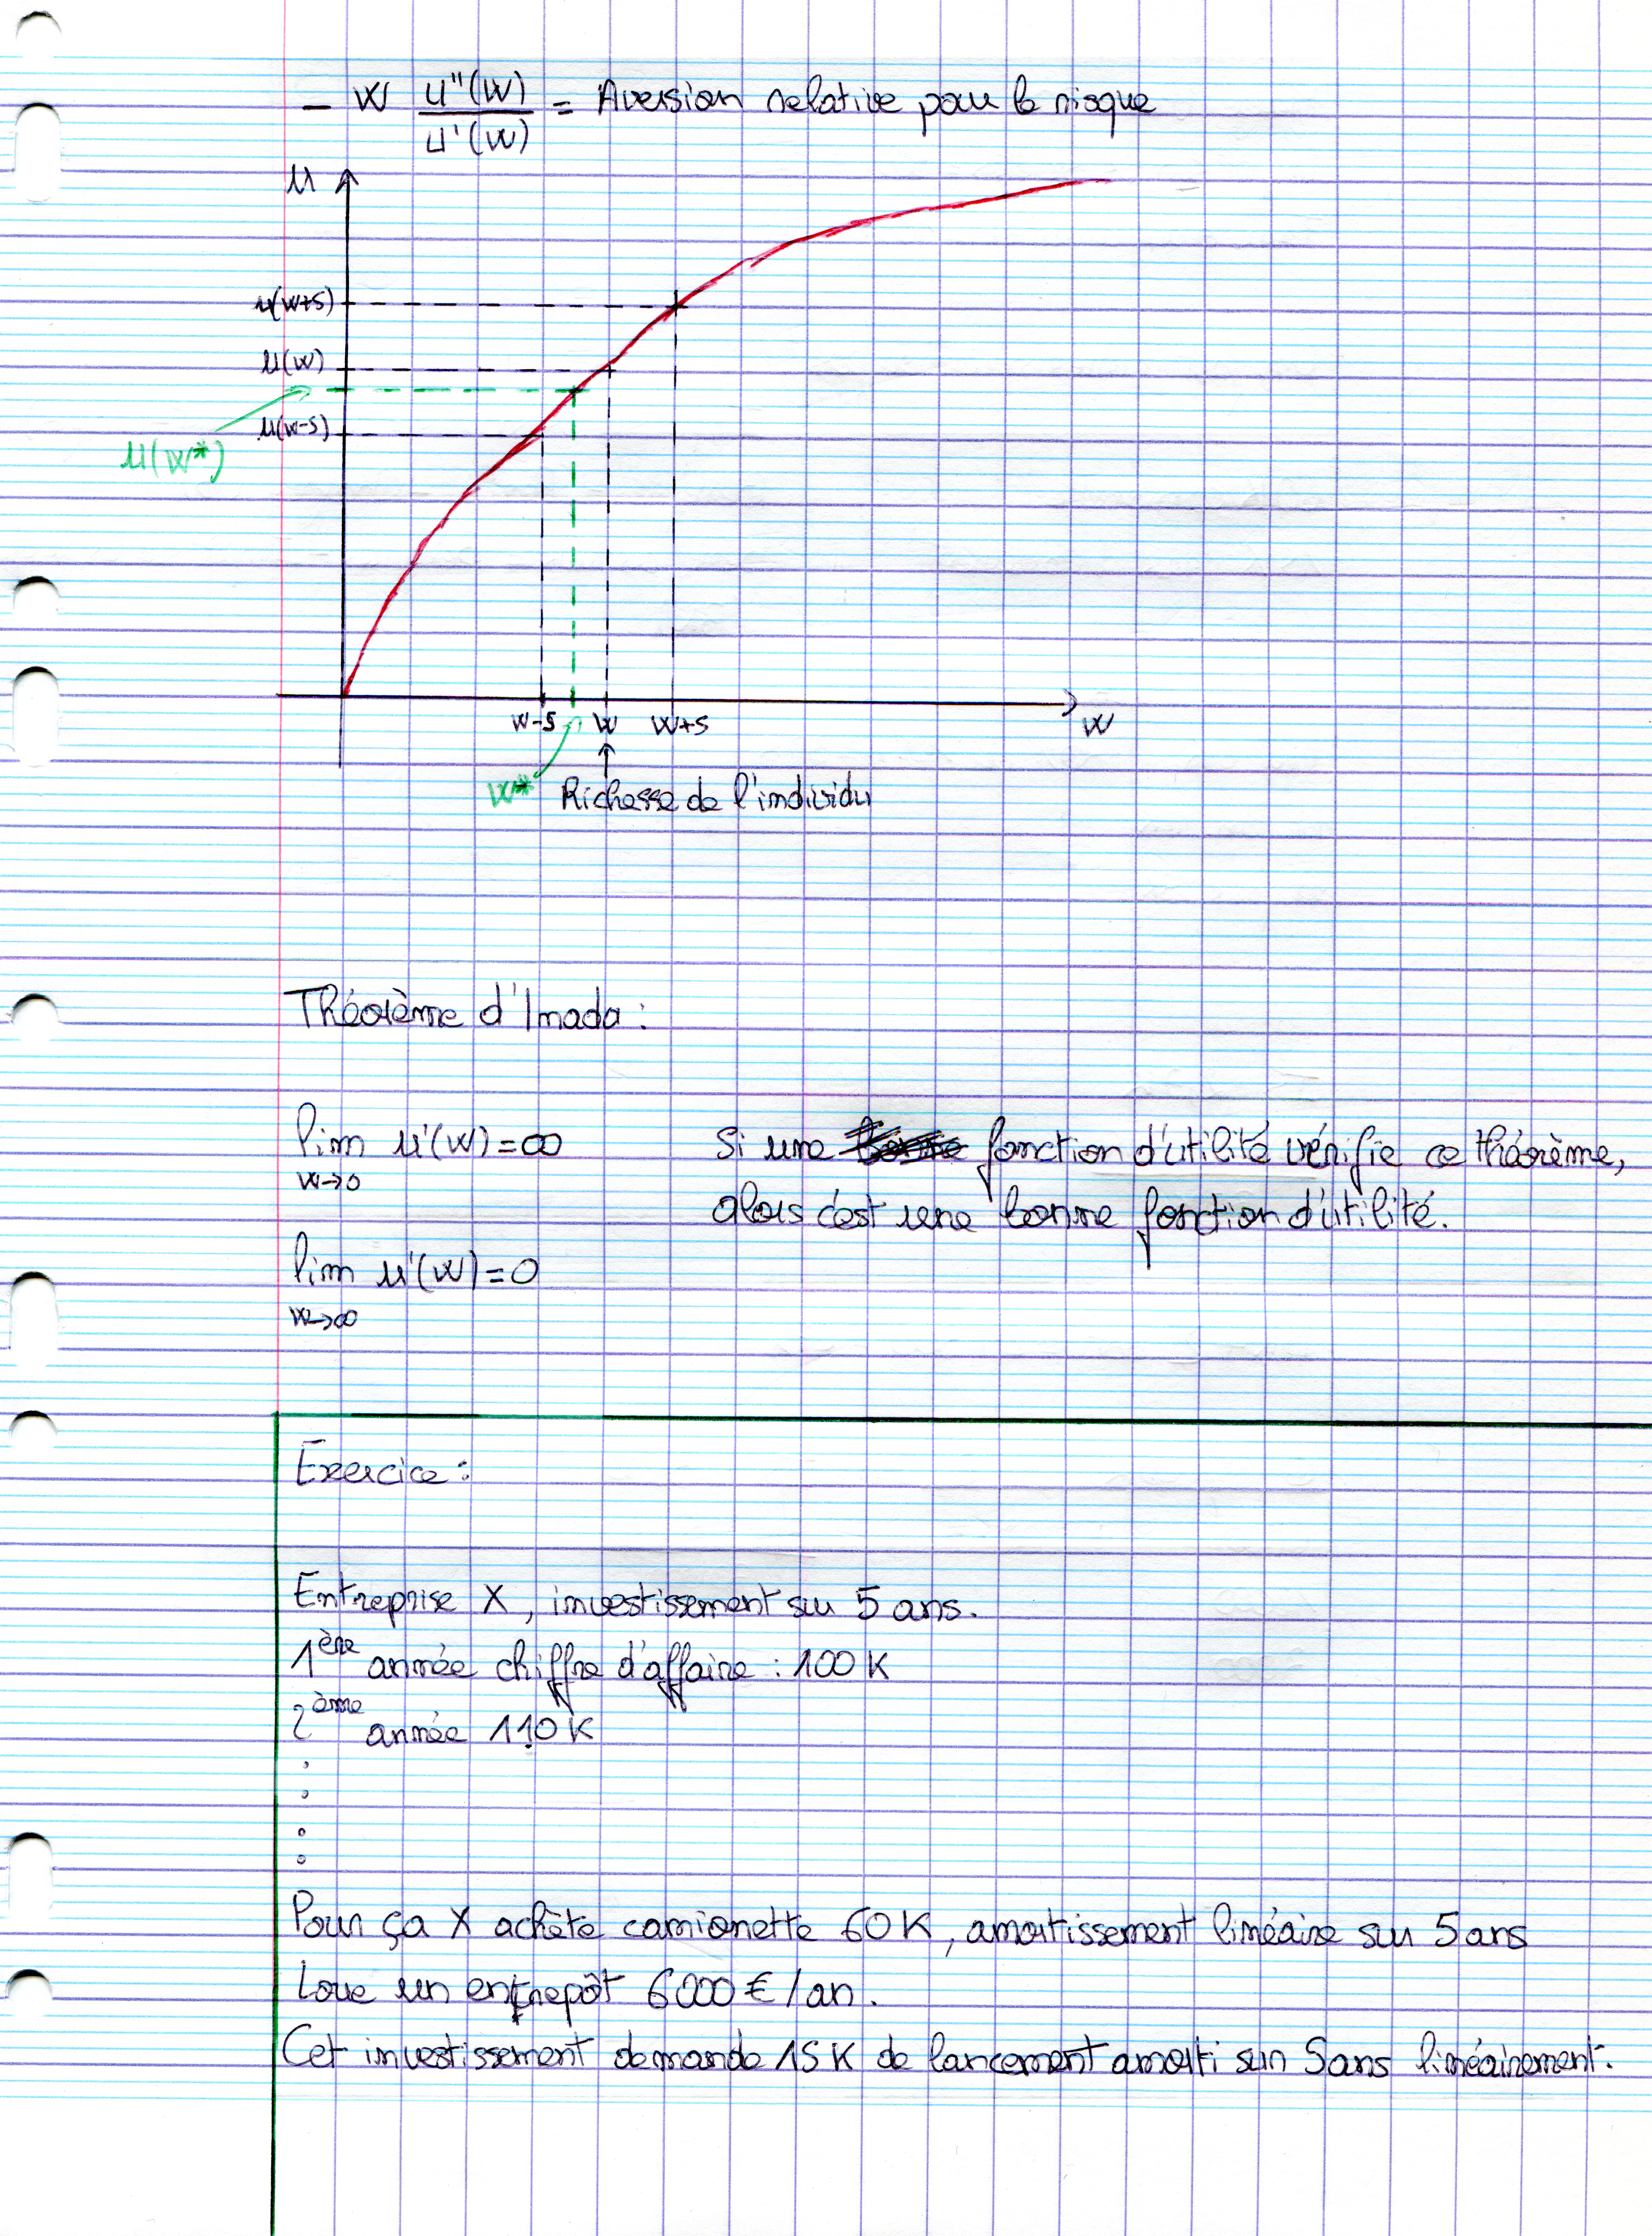 - W u''(W) / u'(W) = Aversion relative pour le risque
u
u(W+5)
u(W)
u(W-5)
u(W*)
W-5 W W+5 W
W* Richesse de l'individu
Théorème d'Inada :
lim u'(W) = ∞ Si une fonction d'utilité vérifie ce théorème,
W→0
alors c'est une bonne fonction d'utilité.
lim u'(W) = 0
W→∞
Exercice :
Entreprise X, investissement sur 5 ans.
1ère année chiffre d'affaire : 100 K
2ème année 110 K
Pour ça X achète camionette 60 K, amortissement linéaire sur 5 ans
Loue un entrepôt 6000 € / an.
Cet investissement demande 15 K de lancement amorti sur 5 ans linéairement.